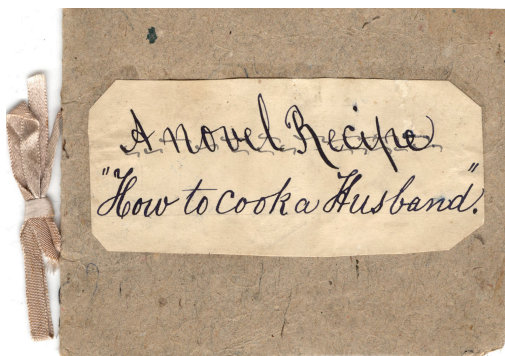 A Novel Recipe
"How to cook a Husband".